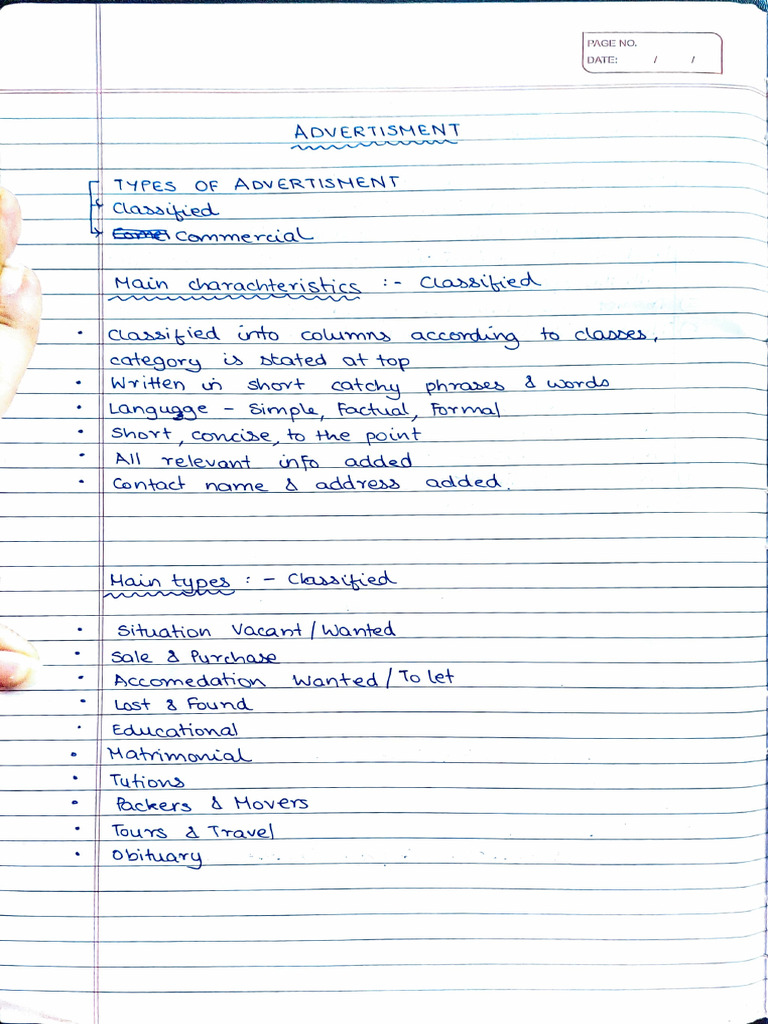 PAGE NO.
DATE: / /
ADVERTISMENT
TYPES OF ADVERTISMENT
Classified
Commercial
Main charachteristics :- Classified
• Classified into columns according to classes,
category is stated at top
• Written in short catchy phrases & words
• Languagge - Simple, Factual, Formal
• Short, concise, to the point
• All relevant info added
• Contact name & address added.
Main types :- Classified
• Situation Vacant/Wanted
• Sale & Purchase
• Accomedation Wanted/To let
• Lost & Found
• Educational
• Matrimonial
• Tutions
• Packers & Movers
• Tours & Travel
• Obituary